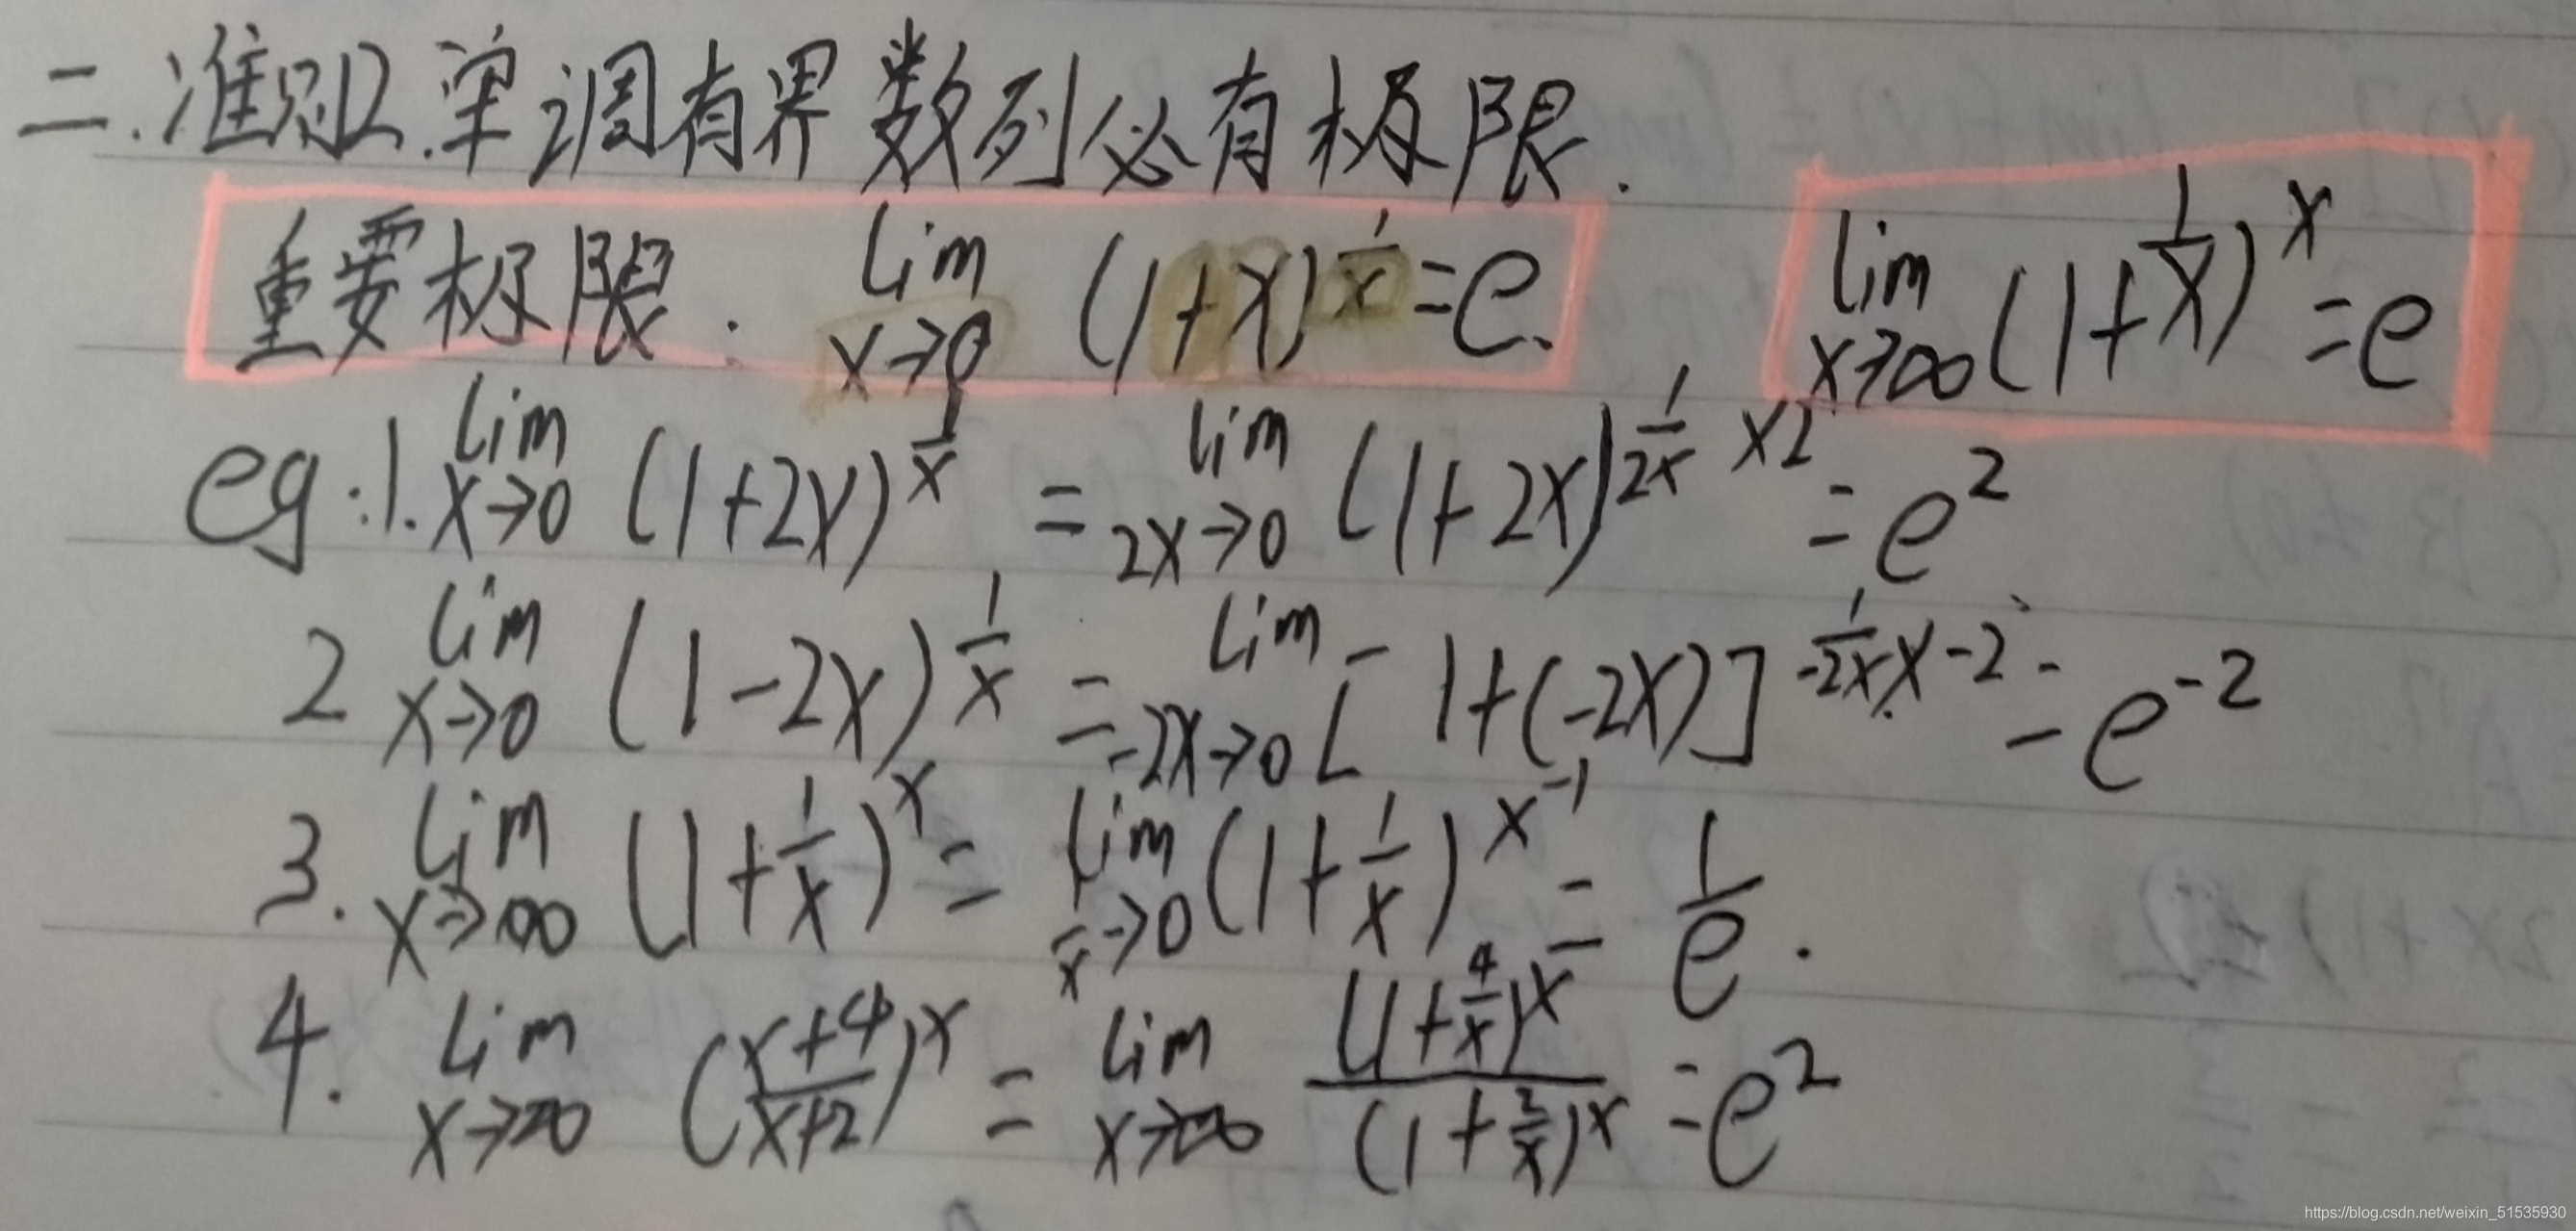 二.准则2.单调有界数列必有极限.
重要极限. lim x→0 (1+x)^(1/x) = e. lim x→∞ (1+1/x)^x = e
eg:1. lim x→0 (1+2x)^(1/x) = lim 2x→0 (1+2x)^(1/2x ×2) = e^2
2 lim x→0 (1-2x)^(1/x) = lim -2x→0 [1+(-2x)]^(1/-2x × -2) = e^-2
3. lim x→∞ (1+1/x)^x = lim 1/x→0 (1+1/x)^x^-1 = 1/e.
4. lim x→∞ ((x+4)/(x+2))^x = lim x→∞ (1+4/x)^x / (1+2/x)^x = e^2
https://blog.csdn.net/weixin_51535930